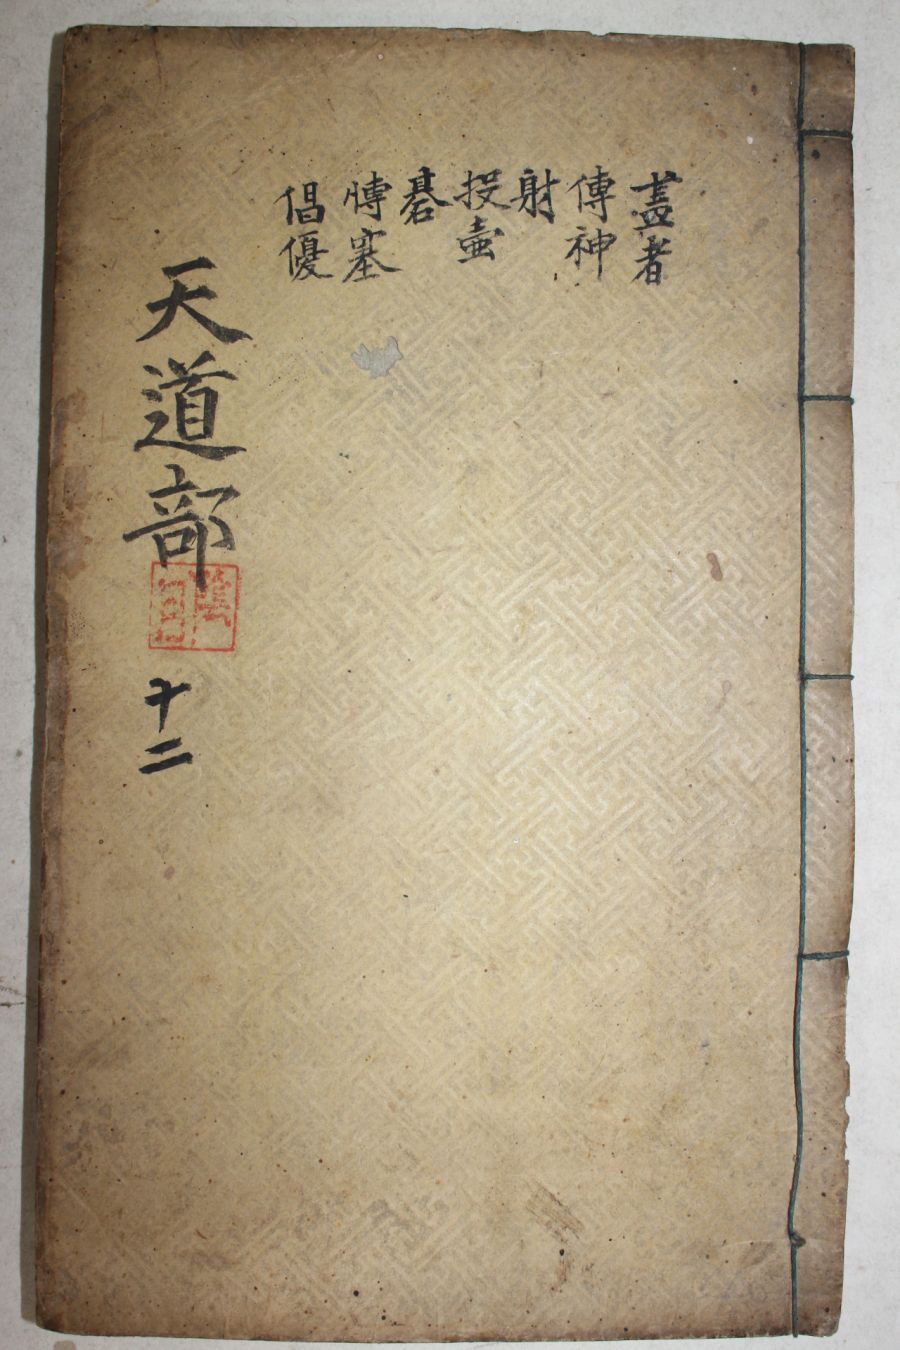 盖者
傳神
射
投壷
碁
博塞
倡優
天道部
十二